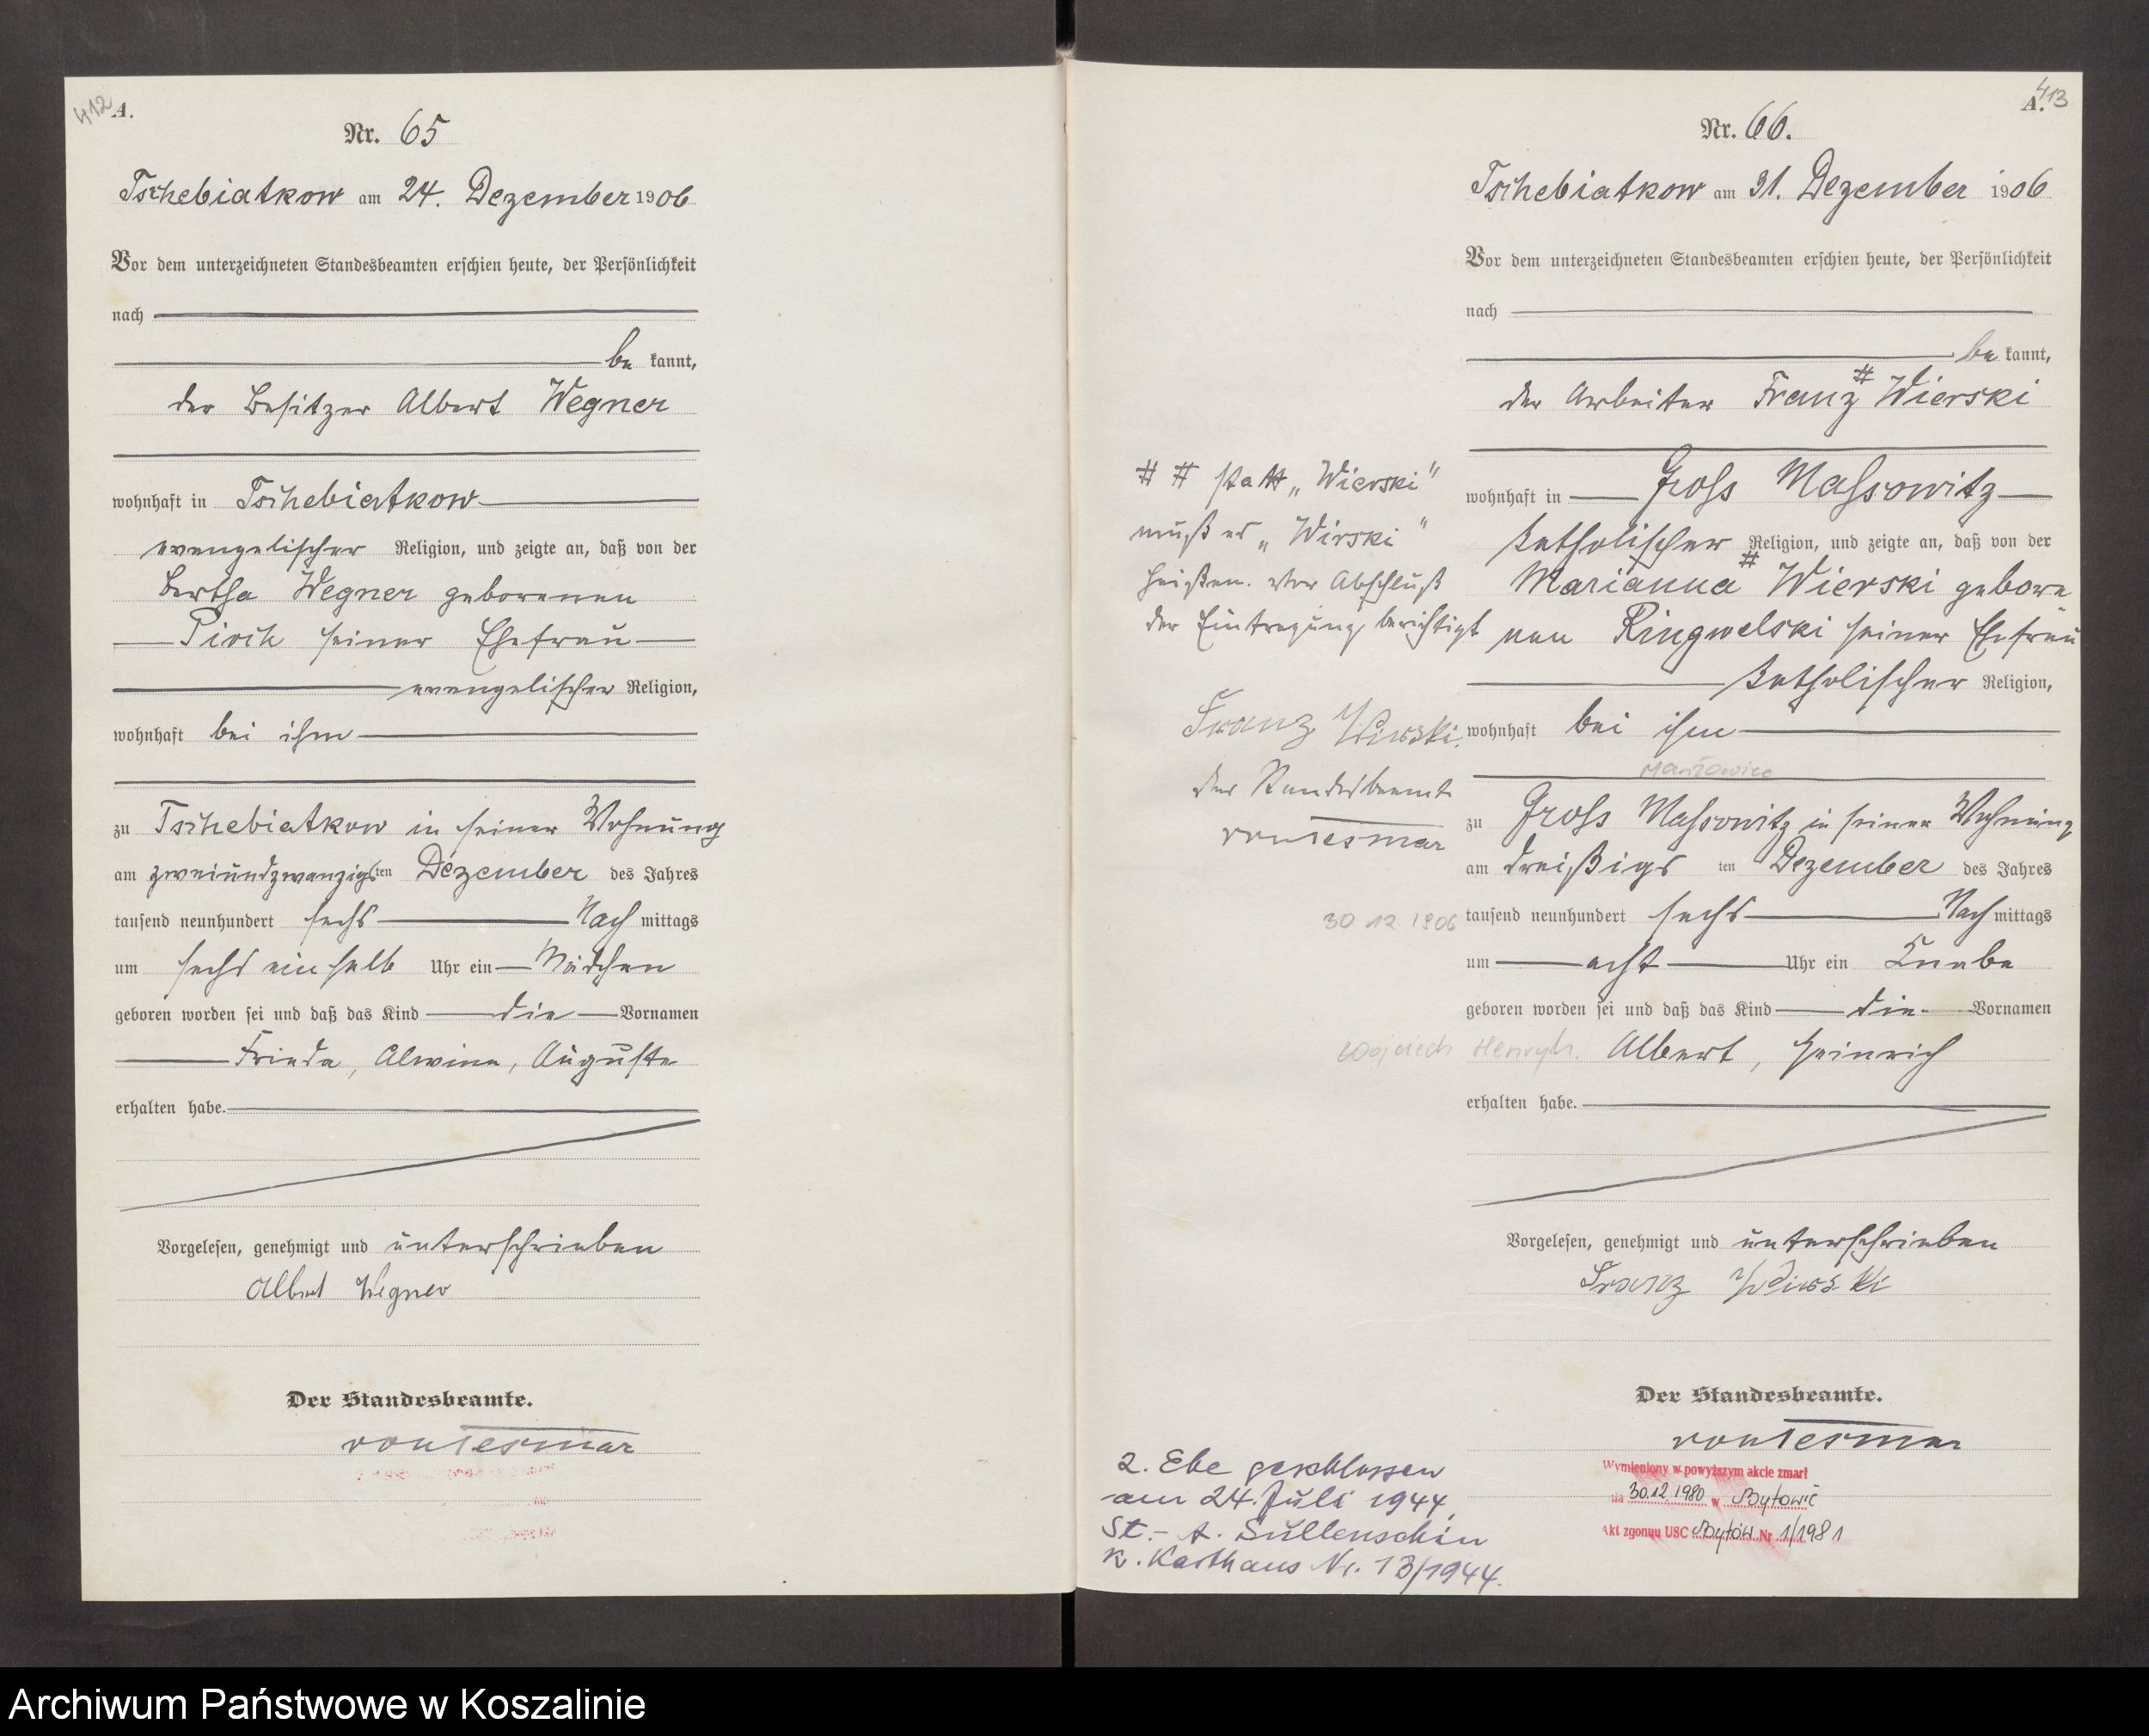 412
A.
Nr. 65
Tschebiatkow am 24. Dezember 1906
Vor dem unterzeichneten Standesbeamten erschien heute, der Persönlichkeit
nach
be kannt,
der Besitzer Albert Wegner
wohnhaft in Tschebiatkow
evangelischer Religion, und zeigte an, daß von der
Bertha Wegner geborenen
Pioch seiner Ehefrau
evangelischer Religion,
wohnhaft bei ihm
zu Tschebiatkow in seiner Wohnung
am zweiundzwanzigsten Dezember des Jahres
tausend neunhundert sechs Nach mittags
um sechs ein halb Uhr ein Mädchen
geboren worden sei und daß das Kind die Vornamen
Frieda, Alwine, Auguste
erhalten habe.
Vorgelesen, genehmigt und unterschrieben
Albert Wegner
Der Standesbeamte.
von Tesmar
413
A.
Nr. 66.
Tschebiatkow am 31. Dezember 1906
Vor dem unterzeichneten Standesbeamten erschien heute, der Persönlichkeit
nach
be kannt,
der Arbeiter Franz # Wierski
wohnhaft in Gross Massowitz
katholischer Religion, und zeigte an, daß von der
Marianna # Wierski gebore
nen Ringwelski seiner Ehefrau
katholischer Religion,
wohnhaft bei ihm
zu Gross Massowitz in seiner Wohnung
am dreißigs ten Dezember des Jahres
tausend neunhundert sechs Nach mittags
um acht Uhr ein Knabe
geboren worden sei und daß das Kind die Vornamen
Albert, Heinrich
erhalten habe.
Vorgelesen, genehmigt und unterschrieben
Franz Wirski
Der Standesbeamte.
von Tesmar
Wymieniony w powyższym akcie zmarł
dnia 30.12.1980 w Bytowie
Akt zgonu USC Bytów Nr 1/1981
# # statt „Wierski"
muß es „Wirski"
heißen. Vor Abschluß
der Eintragung berichtigt
Franz Wirski.
Der Standesbeamte
von Tesmar
30 12 1906
Wojciech Henryk.
2. Ehe geschlossen
am 24. Juli 1944,
St.-A. Sullenschin
K. Karthaus Nr. 13/1944.
Archiwum Państwowe w Koszalinie